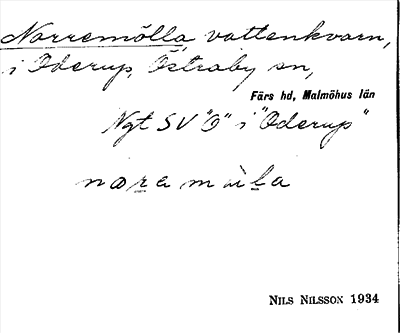 Norremölla, vattenkvarn,
i Öderup, Östraby sn,
Färs hd, Malmöhus län
Ngt SV "Ö" i "Öderup"
nɷra mùla
NILS NILSSON 1934